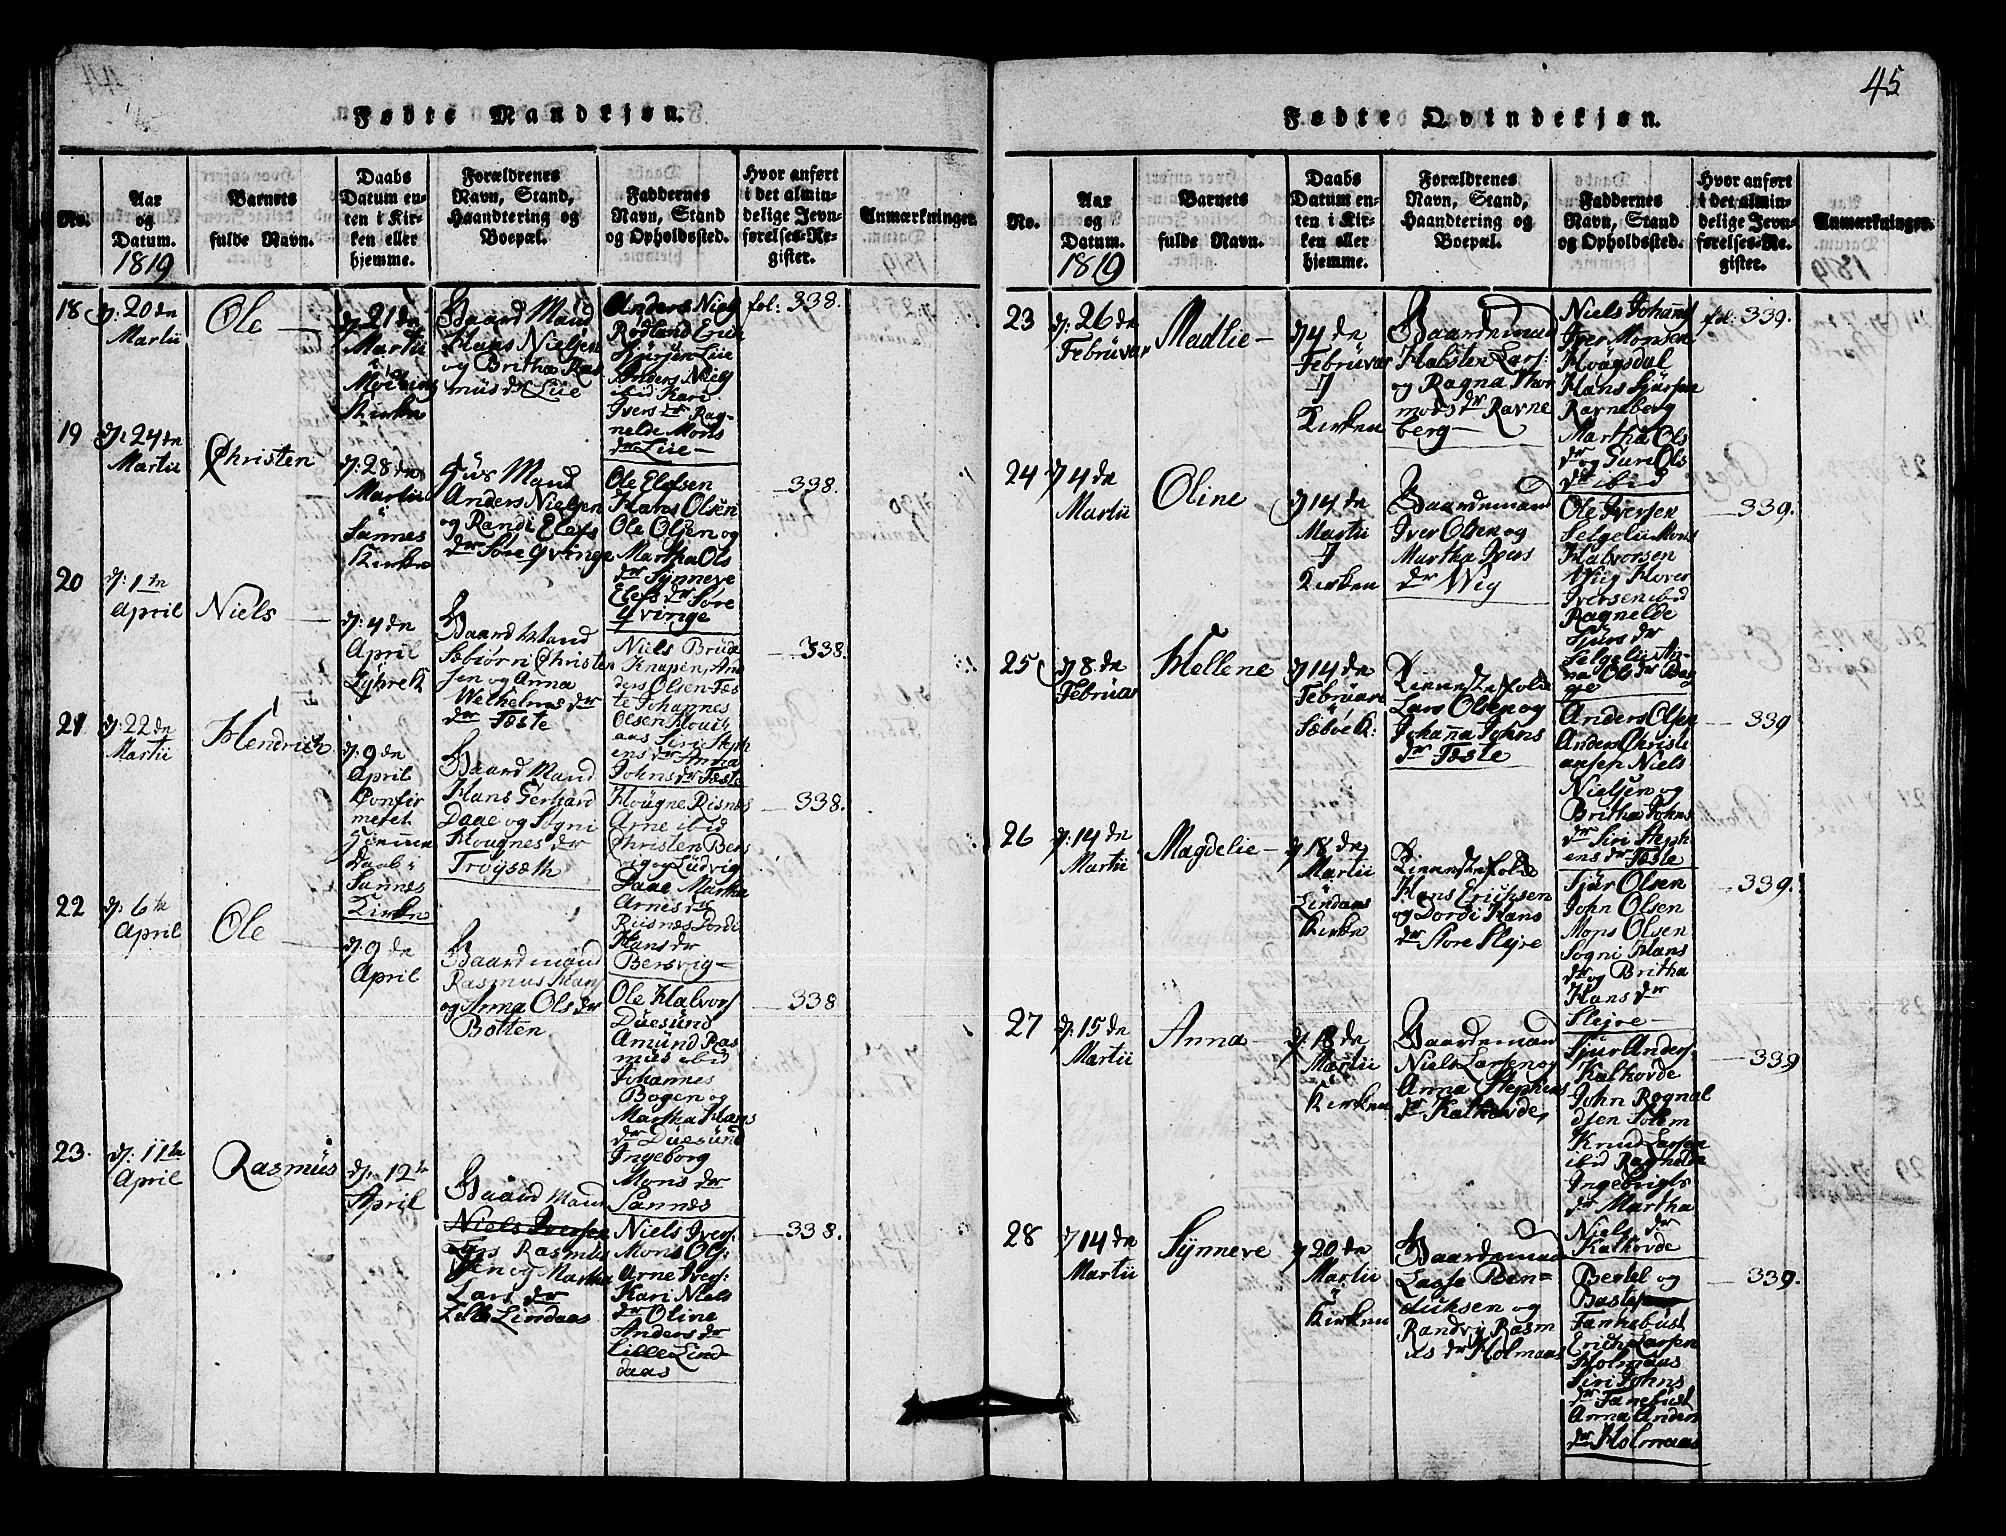 45
Fødte Mandkjøn.
No.
Aar
og
Datum.
1819
Barnets
fulde Navn.
Daabs
Datum en-
ten i Kir-
ken eller
hjemme.
Forældrenes
Navn, Stand,
Haandtering og
Boepæl.
Faddernes
Navn, Stand
og Opholdssted.
Hvor anført
i det almin-
delige Jevn-
førelses-Re-
gister.
Anmærkninger.
18
d: 20 de
Martii
Ole
d: 21 de
Martii
i
Kirken
Gaard Mand
Hans Nielsen
og Britha Ras
mus dr Liie
Anders Niels
Rødland Erik
Sjursen Liie
Anders Niels
ibid Kari
Ivers dr Rag-
nelde Mons
dr Liie
fol: 338.
19
d: 24 de
Martii
Christen
d: 28 de
Martii
i
Sannes
Kirken
Huus Mand
Anders Nielsen
og Randi Elefs
dr Søre Qvinge
Ole Elefsen
Hans Olsen
Ole Olsen og
Martha Ols
dr Synneve
Elefs dr Søre
Qvinge
338.
20
d: 1 te
April
Niels
d: 4 de
April
Gaard Mand
Sæbiørn Christen
sen og Anna
Wethelms dr
Tæste
Niels Brude
Knapen, An
ders Olsen Tæs
te Johannes
Olsen
Siri Steph
ens dr Anna
Johns dr Tæste
338.
21
d: 22 de
Martii
Hendrich
d: 9 de
April
Confir
meret
Hiemme
daab i
Sannes
Kirke
Gaard Mand
Hans Gerhard
Daae og Sogni
Hougnes dr
Troysæth
Hougne Risnes
Arne ibid
Christen Bers
vig og Ludvig
Daae Martha
Arnes dr
Riisnes Dordi
Hans dr
Bersvig
338.
22
d: 6 te
April
Ole
d: 9 de
April
Gaardemand
Rasmus Hans
og Anna Ols dr
Botten
Ole Halvors
Duesund
Amund Ras
mus ibid
Johannes
Bogen og
Martha Hans
dr Duesund
Ingeborg
Mons dr
Sannes
338
23.
d: 11 te
April
Rasmus
d: 12 te
April
Gaard Mand
Niels Iversen
Lars Rasmus
sen og Martha
Lars dr
Lille Lindaas
Niels Ivers:
Mons Ols:
Arne Ivers:
Kari Niels
dr Oline
Anders dr
Lille Lind
daas
338.
Fødte Qvindekjøn.
No.
Aar
og
Datum.
1819
Barnets
fulde Navn.
Daabs
Datum en-
ten i Kir-
ken eller
hjemme.
Forældrenes
Navn, Stand,
Haandtering og
Boepæl.
Faddernes
Navn, Stand
og Opholdssted.
Hvor anført
i det almin-
delige Jevn-
førelses-Re-
gister.
Anmærkninger.
23
d: 26 de
Februar
Madlie
d 4 de
Februar
i
Kirken
Gaardemand
Halsten Lars:
og Ragna Thor
mods dr Ravne
berg
Niels Johans
Iver Monsen
Hougsdal
Hans Sjursen
Ravneberg
Martha Ols
dr og Guri Ols
dr ibid
fol: 339.
24
d 4 de
Martii
Oline
d 14 de
Martii
i
Kirken
Gaardemand
Iver Olsen og
Martha Ivers
dr Wig
Ole Iversen
Selgelii Mons
Halvorsen
Wiig Hover
Iversen ibid
Ragnelde
Sjurs dr
Selgelii An-
na Ols dr
339.
25
d 8 de
Februar
Hellene
d 14 de
Februar
i
Sæbøe K:
Tienestefolk
Lars Olsen og
Johanna Johns
dr Tæste
Anders Olsen
Anders Christi
ansen Niels
Nielsen og
Britha Johns
dr Siri Steph
ens dr Tæste
339
26
d: 14 de
Martii
Magdelie
d 18 de
Martii
i
Lindaas
Kirke
Tienestefolk
Hans Erichsen
og Dordi Hans
dr Store Slejre
Sjur Olsen
John Olsen
Mons Olsen
Sogni Hans
dr og Britha
Hans dr
Slejre
339.
27
d: 15 de
Martii
Anna
d: 18 de
Martii
i
Kirken
Gaardemand
Niels Larsen og
Anna Stephens
dr Kalhovde,
Sjur Anders:
Kalhovde
John Rognal
dsen Solem
Knud Larsen
ibid Ragnelde
Ingebrigts
dr Martha
Niels dr
Kalhovde
339
28
d 14 de
Martii
Synneve
d 20 de
Martii
i
Kirken
Gaardemand
Lasse Ben-
dichsen og
Randvi Rasm
us dr Holmaas
Bertel og
Baste
Fanhebust
Erich Larsen
Holmaas
Siri Johns
dr Fanebust
Anna Anders
dr Holmaas
339.